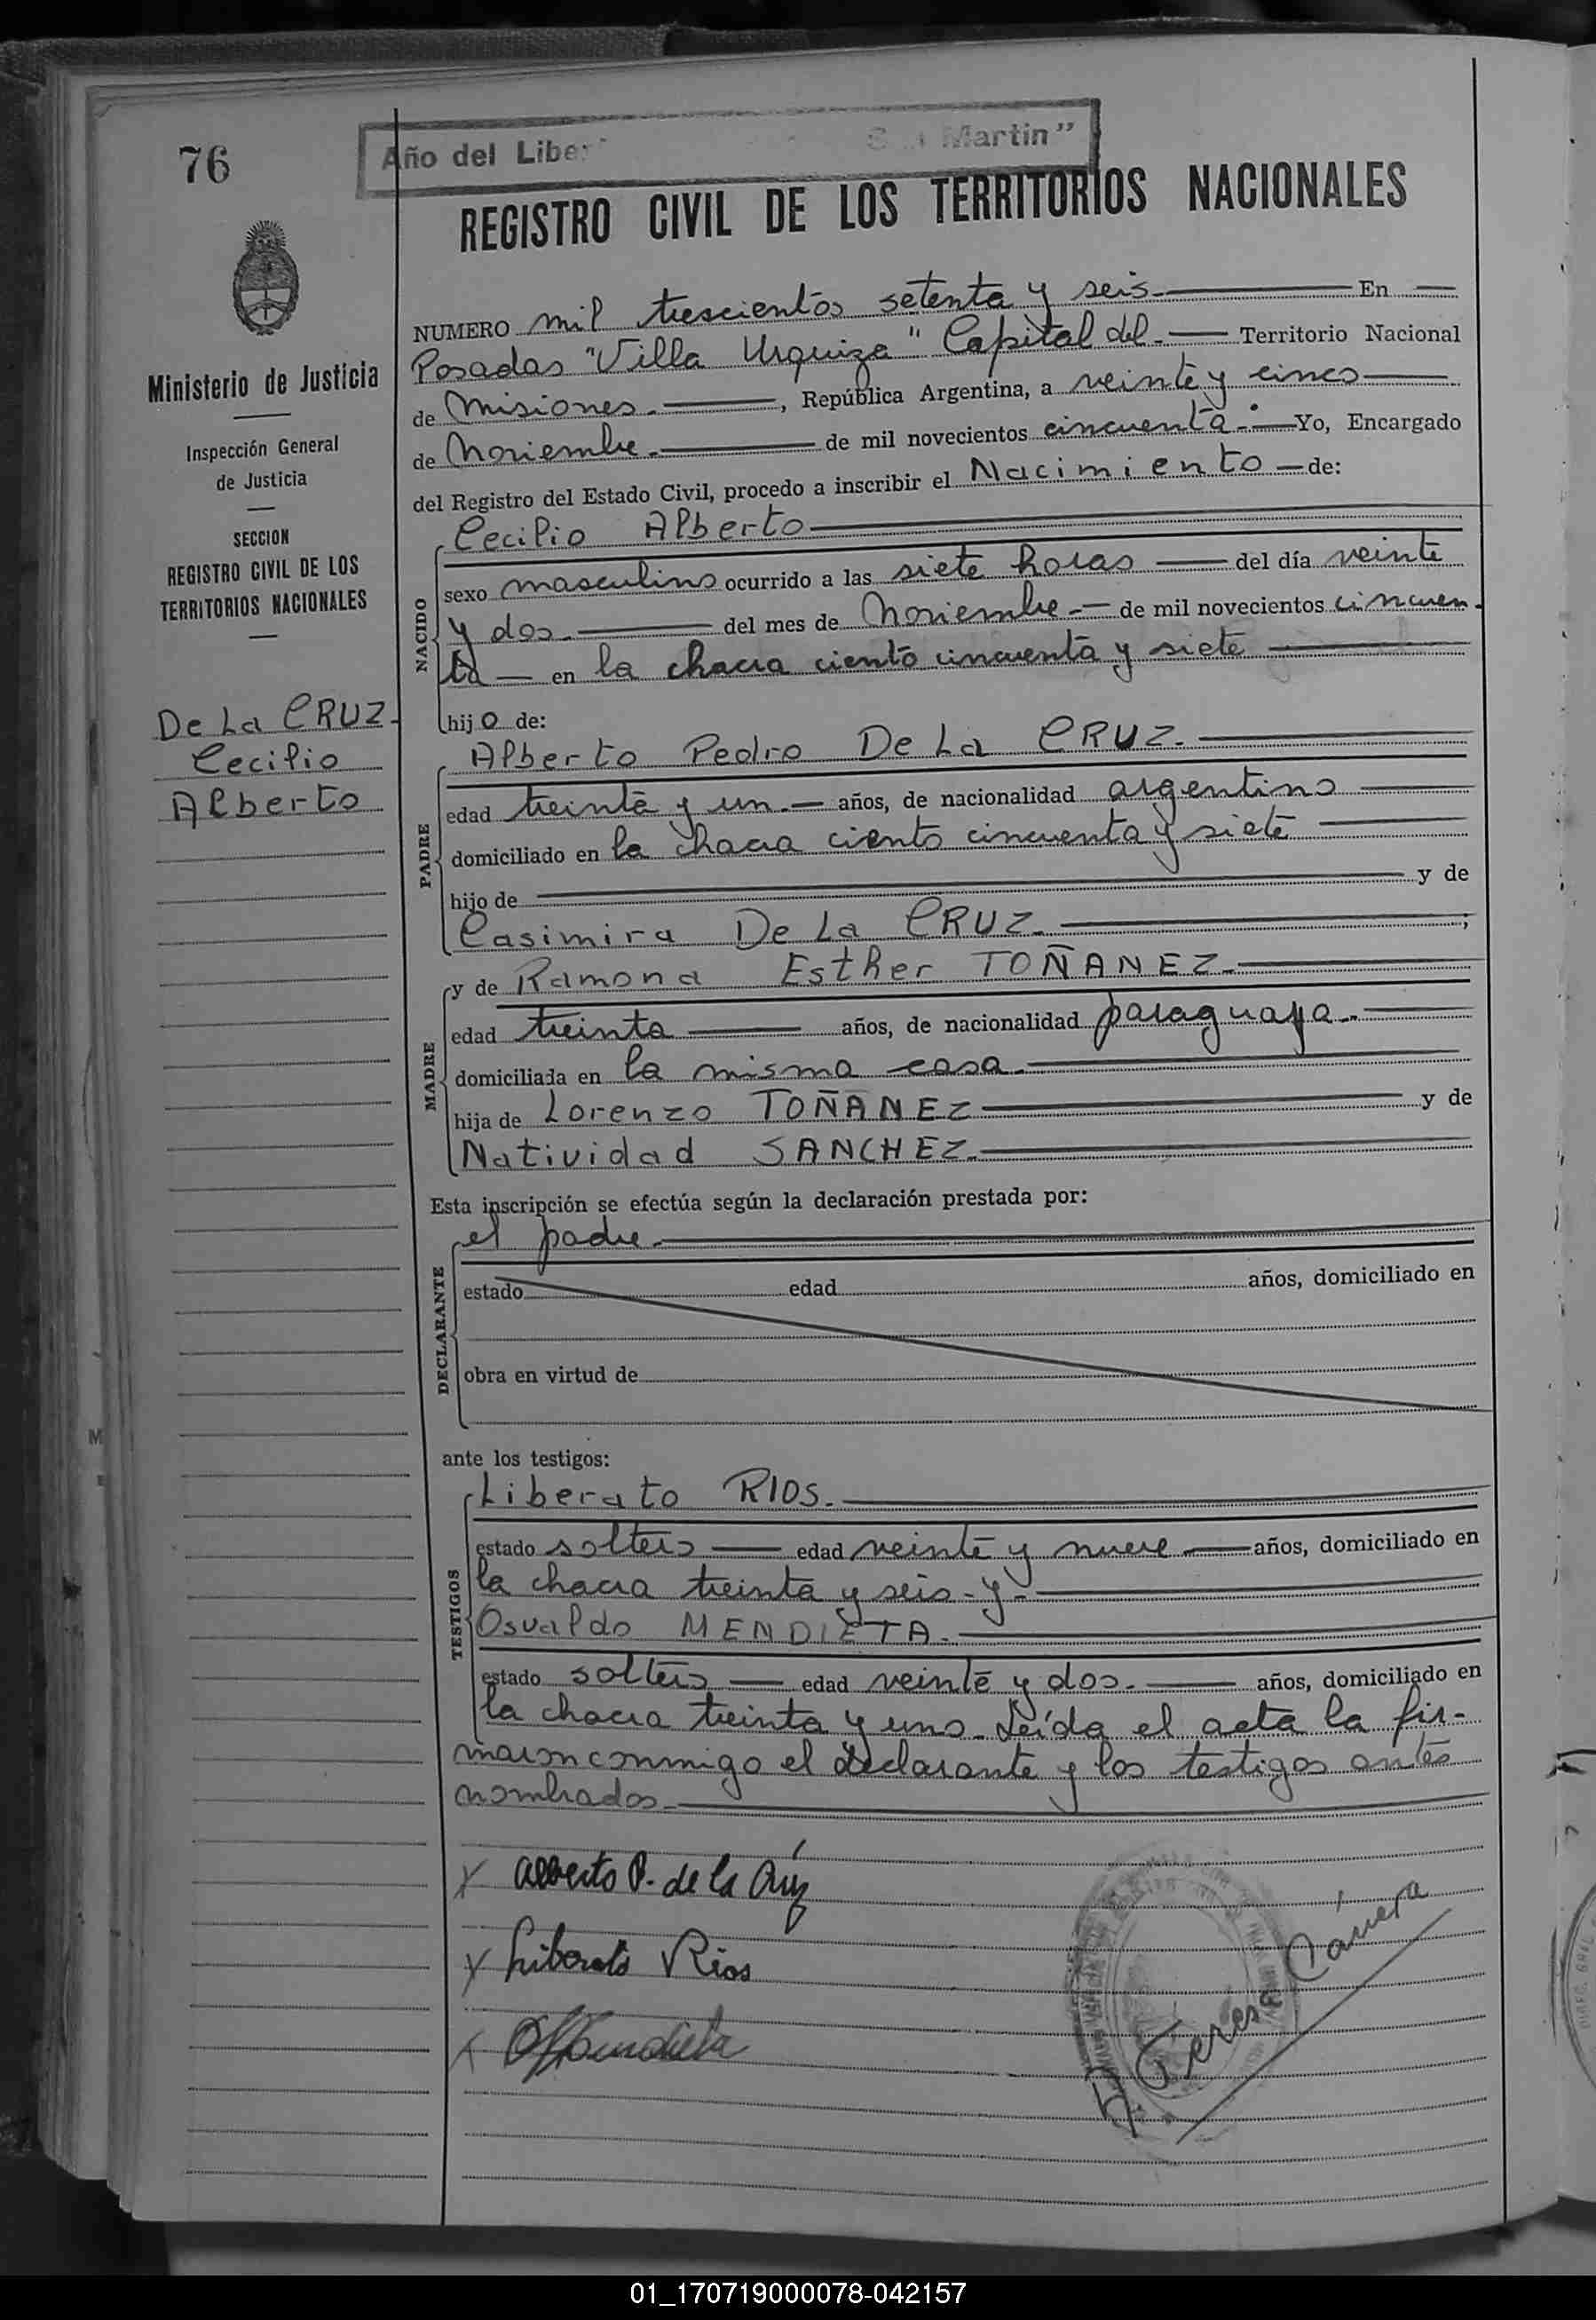 76
Año del Libe
Martin"
REGISTRO CIVIL DE LOS TERRITORIOS NACIONALES
Ministerio de Justicia
Inspección General
de Justicia
SECCION
REGISTRO CIVIL DE LOS
TERRITORIOS NACIONALES
De La CRUZ.
Cecilio
Alberto
NUMERO mil trescientos setenta y seis.— En —
Posadas "Villa Urquiza" Capital del.— Territorio Nacional
de Misiones.—, República Argentina, a veinte y cinco—
de Noviembre.— de mil novecientos cincuenta.—Yo, Encargado
del Registro del Estado Civil, procedo a inscribir el Nacimiento—de:
NACIDO
Cecilio Alberto—
sexo masculino ocurrido a las siete horas — del día veinte
y dos.— del mes de Noviembre.— de mil novecientos cincuen-
ta — en la chacra ciento cincuenta y siete —
hijo de:
PADRE
Alberto Pedro De La CRUZ.—
edad treinta y un.— años, de nacionalidad argentino —
domiciliado en la chacra ciento cincuenta y siete —
hijo de — y de
Casimira De La CRUZ.—;
MADRE
y de Ramona Esther TOÑANEZ.—
edad treinta — años, de nacionalidad paraguaya.—
domiciliada en la misma casa.—
hija de Lorenzo TOÑANEZ— y de
Natividad SANCHEZ.—
Esta inscripción se efectúa según la declaración prestada por:
DECLARANTE
el padre.—
estado edad años, domiciliado en
obra en virtud de
ante los testigos:
TESTIGOS
Liberato RIOS.—
estado soltero — edad veinte y nueve — años, domiciliado en
la chacra treinta y seis - y -—
Osvaldo MENDIETA.—
estado soltero — edad veinte y dos.— años, domiciliado en
la chacra treinta y uno. Leída el acta la fir-
maron conmigo el declarante y los testigos antes
nombrados.—
x Alberto P. de la Cruz
x Liberato Rios
x OMendieta
Teresa Cámera
01_170719000078-042157